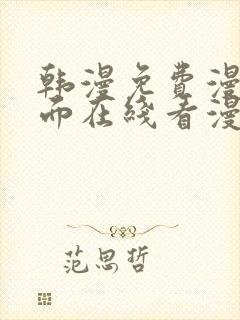 韩漫免费漫
而在线看漫
范思哲